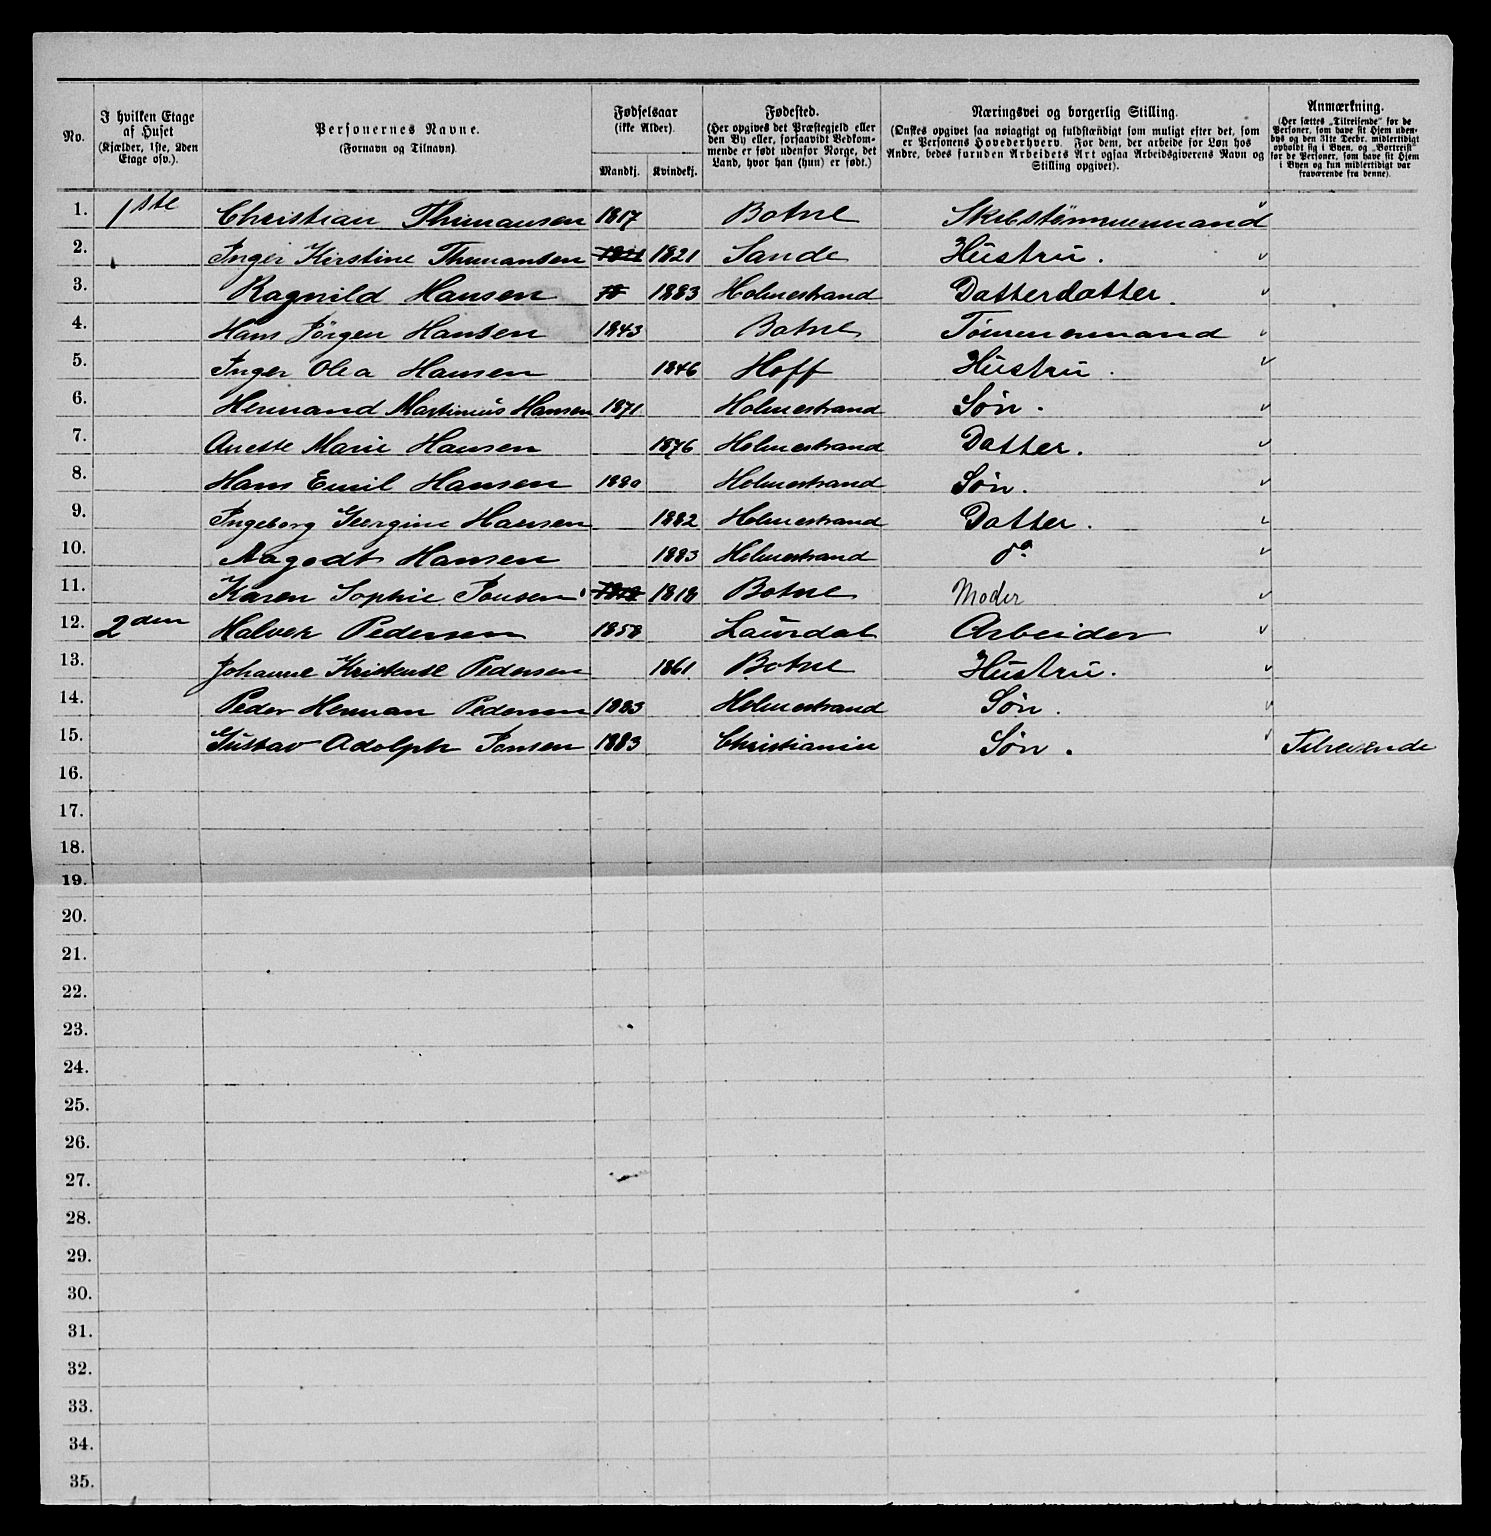 No.
I hvilken Etage af Huset (Kjælder, 1ste, 2den Etage osv.).
Personernes Navne. (Fornavn og Tilnavn).
Fødselsaar (ikke Alder).
Mandkj. Kvindekj.
Fødested. (Her opgives det Præstegjeld eller den By eller, forsaavidt Vedkommende er født udenfor Norge, det Land, hvor han (hun) er født.)
Næringsvei og borgerlig Stilling. (Ønskes opgivet saa nøiagtigt og fuldstændigt som muligt efter det, som er Personens Hovederhverv. For dem, der arbeide for Løn hos Andre, bedes foruden Arbeidets Art ogsaa Arbeidsgiverens Navn og Stilling opgivet).
Anmærkning. (Her sættes „Tilreisende" for de Personer, som have sit Hjem udenbys og den 31te Decbr. midlertidigt opholdt sig i Byen, og „Bortreist" for de Personer, som have sit Hjem i Byen og kun midlertidigt var fraværende fra denne).
1. 1ste Christian Thimansen 1817 Botne Skibstømmermand
2. Inger Kirstine Thimansen 1821 1821 Sande Hustru.
3. Ragnild Hansen 18 1883 Holmestrand Datterdatter.
4. Hans Jörgen Hansen 1843 Botne Tømmermand
5. Inger Olea Hansen 1846 Hoff Hustru.
6. Hermand Martinius Hansen 1871 Holmestrand Søn.
7. Anette Marie Hansen 1876 Holmestrand Datter.
8. Hans Emil Hansen 1880 Holmestrand Søn.
9. Ingeborg Georgine Hansen 1882 Holmestrand Datter.
10. Aagodt Hansen 1883 Holmestrand do
11. Karen Sophie Jonsen 1818 1818 Botne Moder
12. 2den Halvor Pedersen 1858 Laurdal Arbeider
13. Johanne Kristense Pedersen 1861 Botne Hustru.
14. Peder Herman Pedersen 1883 Holmestrand Søn.
15. Gustav Adolph Jonsen 1883 Christiania Søn. Tilreisende
16.
17.
18.
19.
20.
21.
22.
23.
24.
25.
26.
27.
28.
29.
30.
31.
32.
33.
34.
35.